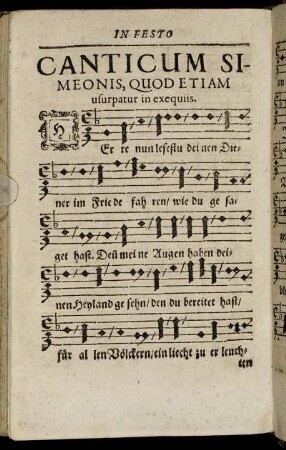 IN FESTO
CANTICUM SI-
MEONIS, QUOD ETIAM
usurpatur in exequiis.
H
Er re nun lesestu dei nen Die-
ner im Frie de fah ren/ wie du ge sa-
get hast. Deñ mei ne Augen haben dei-
nen Heyland ge sehn/ den du bereitet hast/
für al len Völckern/ ein liecht zu er leuch-
ten